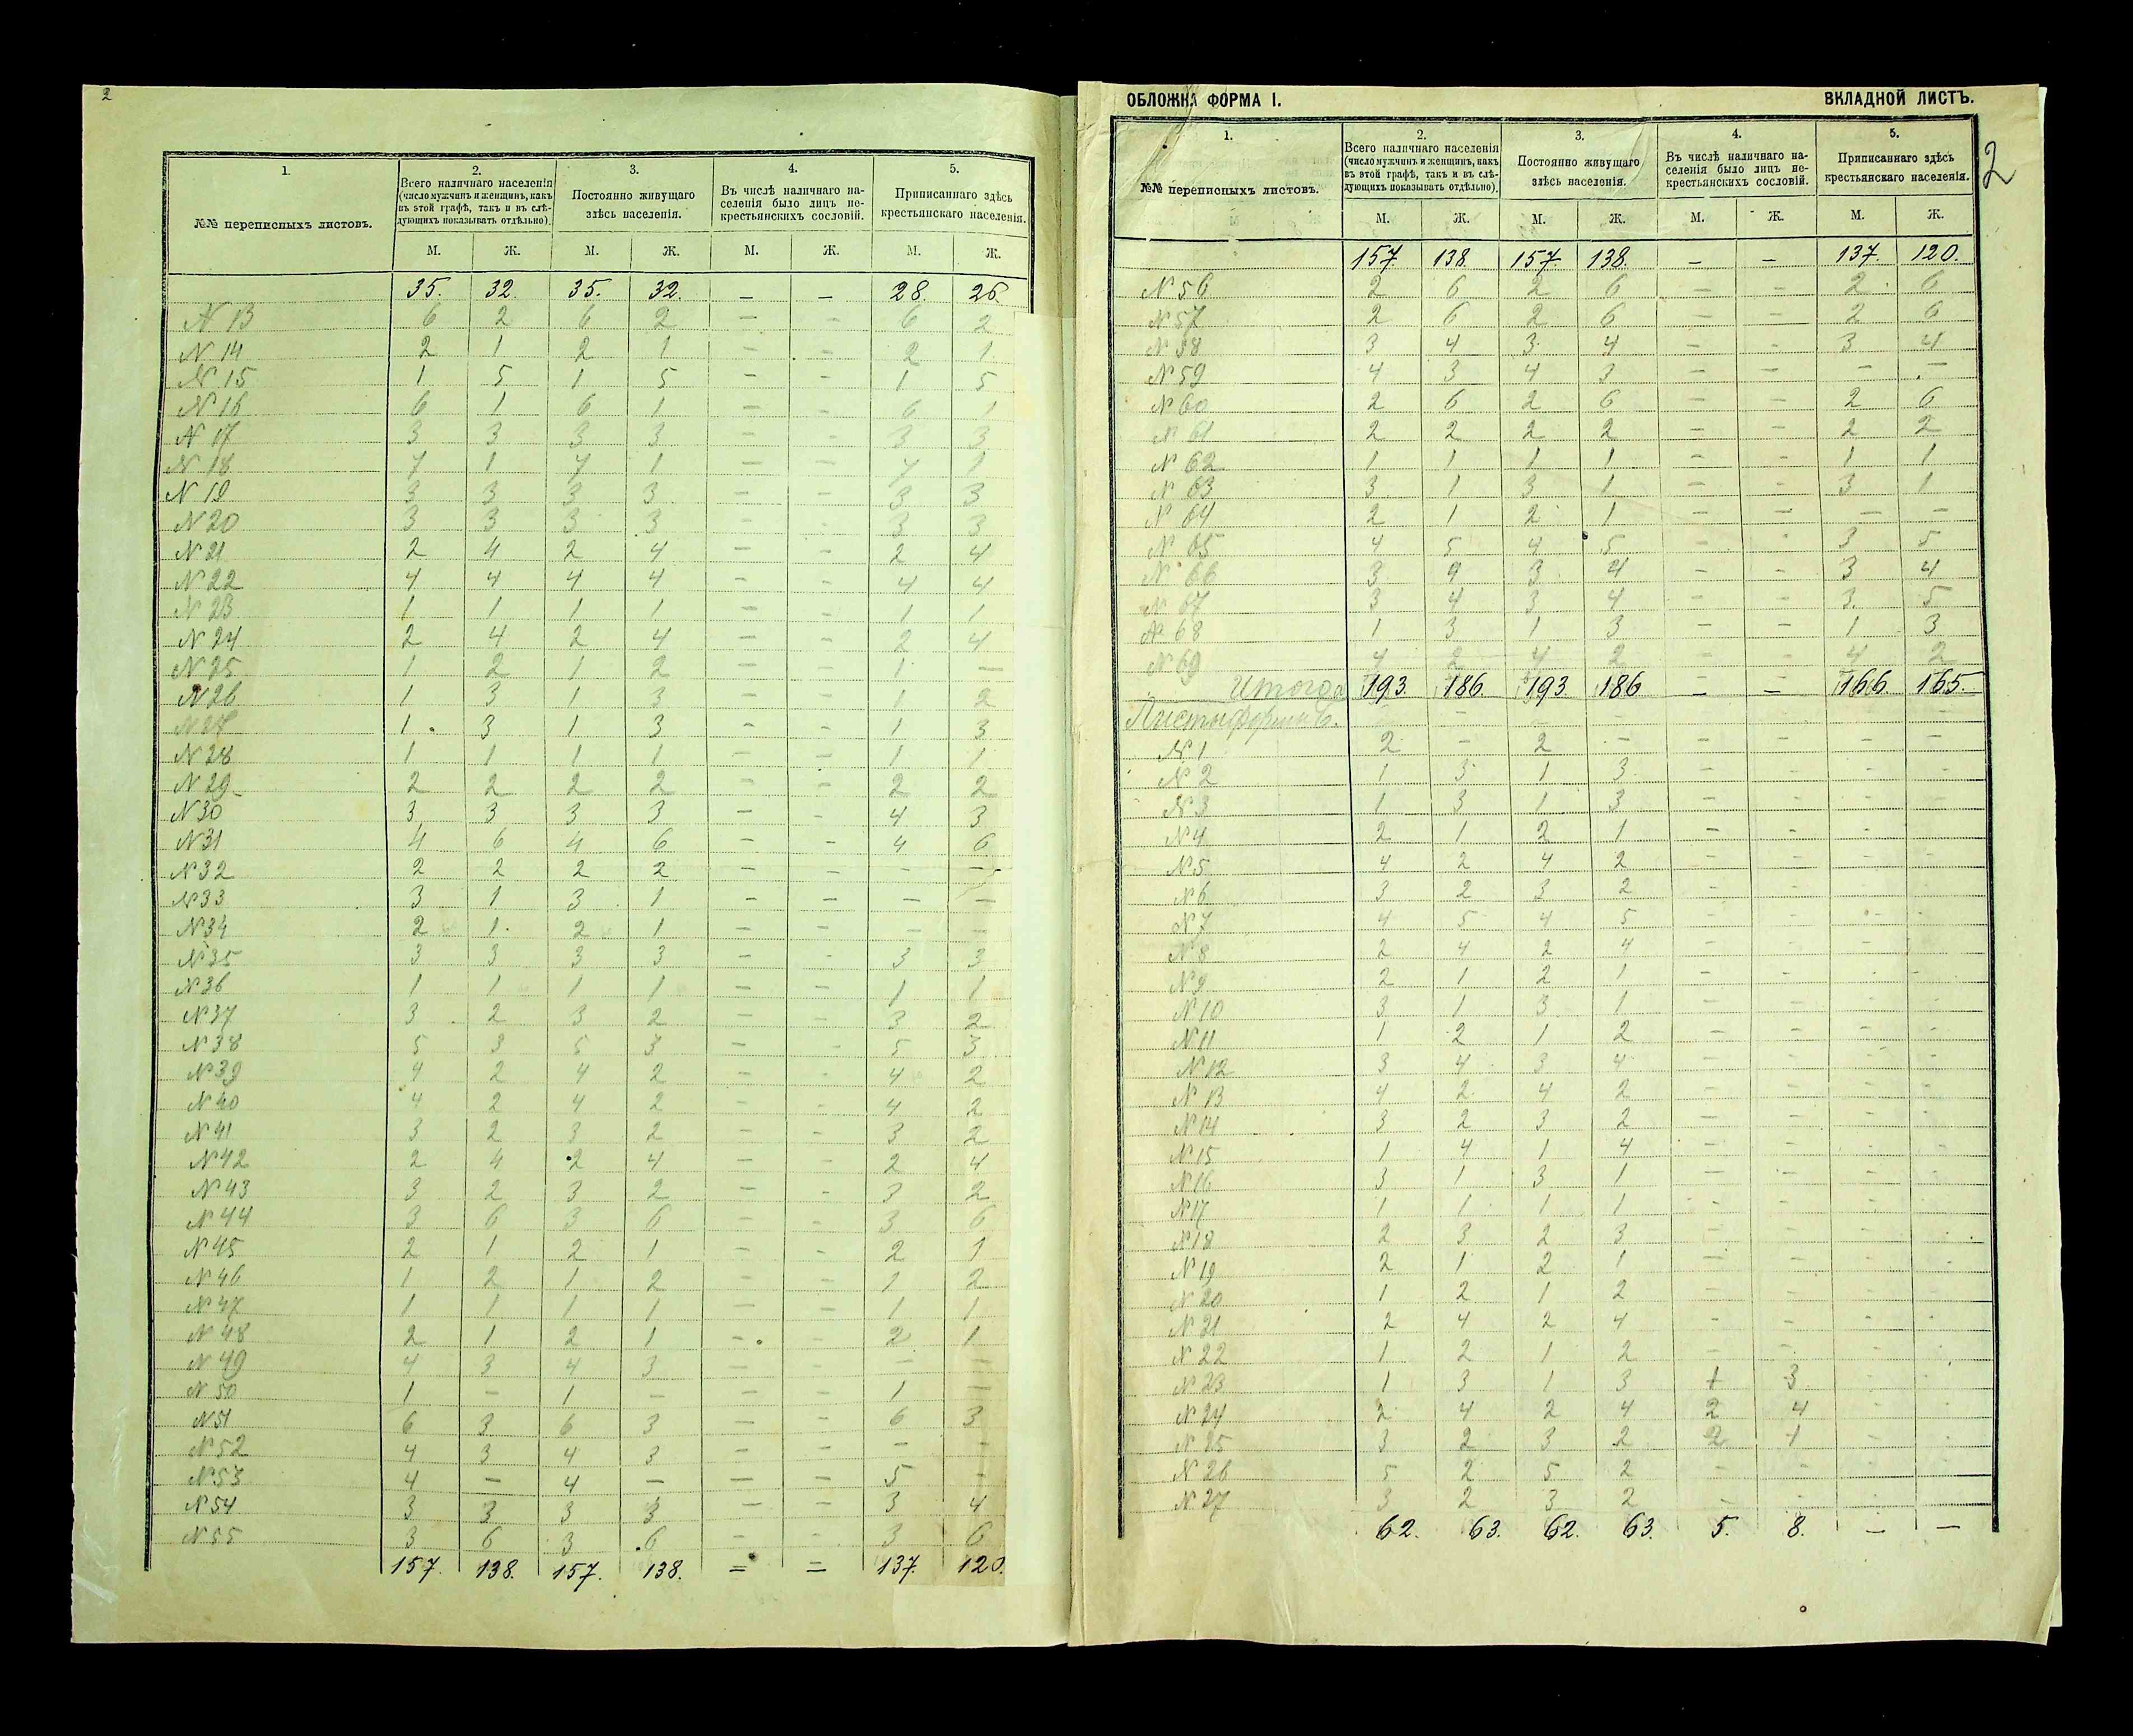 2
1. 2. 3. 4. 5.
№№ переписныхъ листовъ. Всего наличнаго населенія (число мужчинъ и женщинъ, какъ въ этой графѣ, такъ и въ слѣдующихъ показывать отдѣльно). Постоянно живущаго здѣсь населенія. Въ числѣ наличнаго населенія было лицъ некрестьянскихъ сословій. Приписаннаго здѣсь крестьянскаго населенія.
М. Ж. М. Ж. М. Ж. М. Ж.
35. 32. 35. 32. — — 28. 26.
N 13 6 2 6 2 — — 6 2
N 14 2 1 2 1 — — 2 1
N 15 1 5 1 5 — — 1 5
N 16 6 1 6 1 — — 6 1
N 17 3 3 3 3 — — 3 3
N 18 4 1 4 1 — — 4 1
N 19 3 3 3 3 — — 3 3
N 20 3 3 3 3 — — 3 3
N 21 2 4 2 4 — — 2 4
N 22 4 4 4 4 — — 4 4
N 23 1 1 1 1 — — 1 1
N 24 2 4 2 4 — — 2 4
N 25 1 2 1 2 — — 1 —
N 26 1 3 1 3 — — 1 2
N 27 1 3 1 3 — — 1 3
N 28 1 1 1 1 — — 1 1
N 29 2 2 2 2 — — 2 2
N 30 3 3 3 3 — — 4 3
N 31 4 6 4 6 — — 4 6
N 32 2 2 2 2 — — — —
N 33 3 1 3 1 — — — —
N 34 2 1 2 1 — — — —
N 35 3 3 3 3 — — 3 3
N 36 1 1 1 1 — — 1 1
N 37 3 2 3 2 — — 3 2
N 38 5 3 5 3 — — 5 3
N 39 4 2 4 2 — — 4 2
N 40 4 2 4 2 — — 4 2
N 41 3 2 3 2 — — 3 2
N 42 2 4 2 4 — — 2 4
N 43 3 2 3 2 — — 3 2
N 44 3 6 3 6 — — 3 6
N 45 2 1 2 1 — — 2 1
N 46 1 2 1 2 — — 1 2
N 47 1 1 1 1 — — 1 1
N 48 2 1 2 1 — — 2 1
N 49 4 3 4 3 — — — —
N 50 1 — 1 — — — 1 —
N 51 6 3 6 3 — — 6 3
N 52 4 3 4 3 — — — —
N 53 4 — 4 — — — 5 —
N 54 3 3 3 3 — — 3 4
N 55 3 6 3 6 — — 3 6
157. 138. 157. 138. = = 137. 120.
ОБЛОЖКА ФОРМА I. ВКЛАДНОЙ ЛИСТЪ.
2
1. 2. 3. 4. 5.
№№ переписныхъ листовъ. Всего наличнаго населенія (число мужчинъ и женщинъ, какъ въ этой графѣ, такъ и въ слѣдующихъ показывать отдѣльно). Постоянно живущаго здѣсь населенія. Въ числѣ наличнаго населенія было лицъ некрестьянскихъ сословій. Приписаннаго здѣсь крестьянскаго населенія.
М. Ж. М. Ж. М. Ж. М. Ж.
157. 138. 157. 138. — — 137. 120.
N 56 2 6 2 6 — — 2 6
N 57 2 6 2 6 — — 2 6
N 58 3 4 3 4 — — 3 4
N 59 4 3 4 3 — — — —
N 60 2 6 2 6 — — 2 6
N 61 2 2 2 2 — — 2 2
N 62 1 1 1 1 — — 1 1
N 63 3 1 3 1 — — 3 1
N 64 2 1 2 1 — — — —
N 65 4 5 4 5 — — 3 5
N 66 3 4 3 4 — — 3 4
N 67 3 4 3 4 — — 3 5
N 68 1 3 1 3 — — 1 3
N 69 4 2 4 2 — — 4 2
Итого 193. 186. 193. 186 — — 166. 165.
Листы формы Б. — — — — — — —
N 1 2 — 2 — — — — —
N 2 1 3 1 3 — — — —
N 3 1 3 1 3 — — — —
N 4 2 1 2 1 — — — —
N 5 4 2 4 2 — — — —
N 6 3 2 3 2 — — — —
N 7 4 5 4 5 — — — —
N 8 2 4 2 4 — — — —
N 9 2 1 2 1 — — — —
N 10 3 1 3 1 — — — —
N 11 1 2 1 2 — — — —
N 12 3 4 3 4 — — — —
N 13 4 2 4 2 — — — —
N 14 3 2 3 2 — — — —
N 15 1 4 1 4 — — — —
N 16 3 1 3 1 — — — —
N 17 1 1 1 1 — — — —
N 18 2 3 2 3 — — — —
N 19 2 1 2 1 — — — —
N 20 1 2 1 2 — — — —
N 21 2 4 2 4 — — — —
N 22 1 2 1 2 — — — —
N 23 1 3 1 3 1 3 — —
N 24 2 4 2 4 2 4 — —
N 25 3 2 3 2 2 1 — —
N 26 5 2 5 2 — — — —
N 27 3 2 3 2 — — — —
62. 63. 62. 63. 5. 8. — —